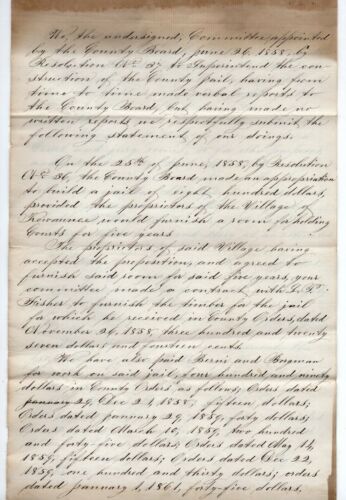 We, the undersigned, Committee, appointed
by the County Board, June 26, 1858, by
Resolution No 37 to Superintend the con-
struction of the County Jail, having from
time to time made verbal reports to
the County Board, but, having made no
written reports we respectfully submit the
following statement of our doings.
On the 25th of June, 1858, by Resolution
No 36, the County Board made an appropriation
to build a jail of eight hundred dollars,
provided the proprietors of the Village of
Kewaunee would furnish a room for holding
Courts for five years
The proprietors of said Village having
accepted the proposition, and agreed to
furnish said room for said five years, your
committee made a contract with
Fisher to furnish the timber for the jail
for which he received in County Orders, dated
November 26, 1858, three hundred and twenty
seven dollars and fourteen cents.
We have also paid Berni and Borgman
for work on said jail, four hundred and ninety
dollars in County Orders as follows, Orders dated
January 29, Dec 21, 1858, fifteen dollars;
Orders dated January 29, 1859, forty dollars;
Orders dated March 10, 1859, two hundred
and forty-five dollars; Orders dated May 14,
1859, fifteen dollars; Orders dated Dec 22,
1859, one hundred and thirty dollars; orders
dated January 1, 1861, forty-five dollars.